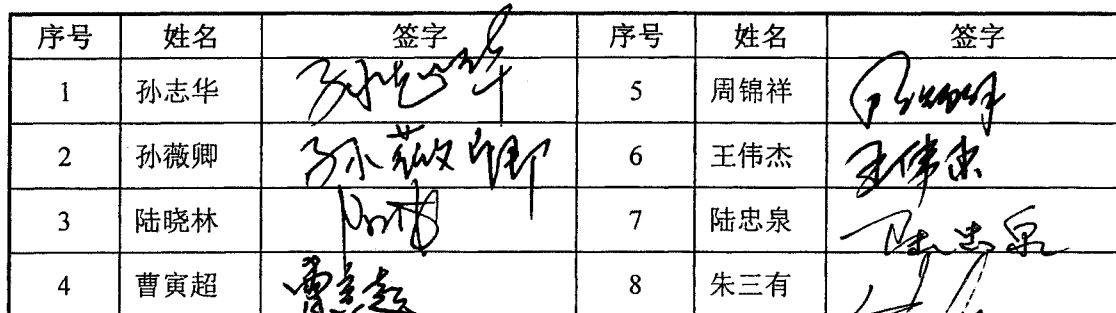 序号 姓名 签字 序号 姓名 签字
1 孙志华 孙志华 5 周锦祥
2 孙薇卿 孙薇卿 6 王伟杰 王伟杰
3 陆晓林 7 陆忠泉 陆忠泉
4 曹寅超 曹寅超 8 朱三有